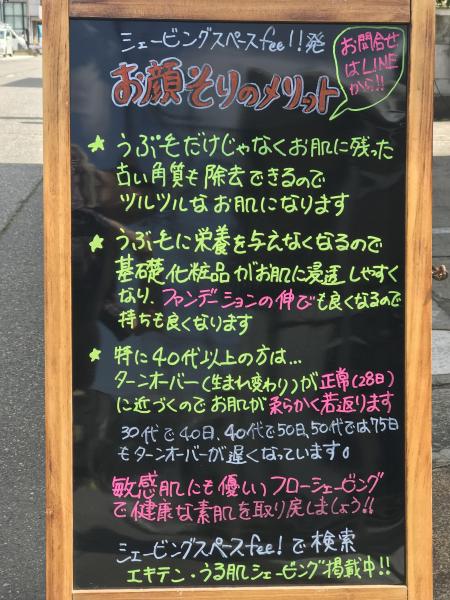 シェービングスペースfee!!発
お問合せ
はLINE
から!!
お顔そりのメリット
★ うぶ毛だけじゃなくお肌に残った
古い角質も除去できるので
ツルツルなお肌になります
★ うぶ毛に栄養を与えなくなるので
基礎化粧品がお肌に浸透しやすく
なり、ファンデーションの伸びも良くなるので
持ちも良くなります
★ 特に40代以上の方は…
ターンオーバー(生まれ変わり)が正常(28日)
に近づくのでお肌が柔らかく若返ります
30代で40日、40代で50日、50代では75日
もターンオーバーが遅くなっています。
敏感肌にも優しいフローシェービング
で健康な素肌を取り戻しましょう!!
シェービングスペースfee!で検索
エキテン・うる肌シェービング掲載中!!